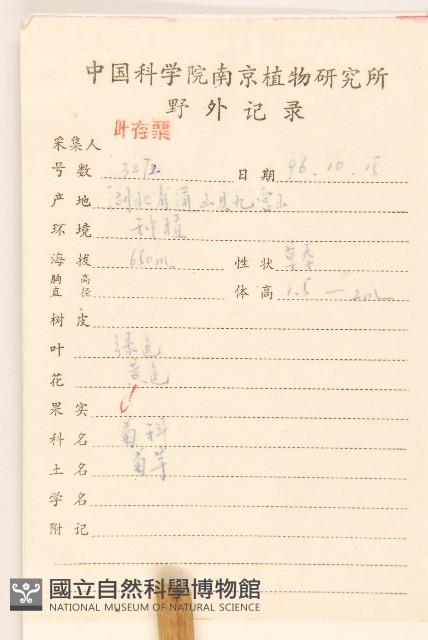 中国科学院南京植物研究所
野外记录
采集人 叶存粟
号数 3272 日期 96.10.15
产地 湖北省通山县九宫山
环境 种植
海拔 650m 性状 草本
胸高直径 体高 1.5—2m
树皮
叶 绿色
花 黄色
果实
科名 菊科
土名 菊芋
学名
附记
國立自然科學博物館
NATIONAL MUSEUM OF NATURAL SCIENCE